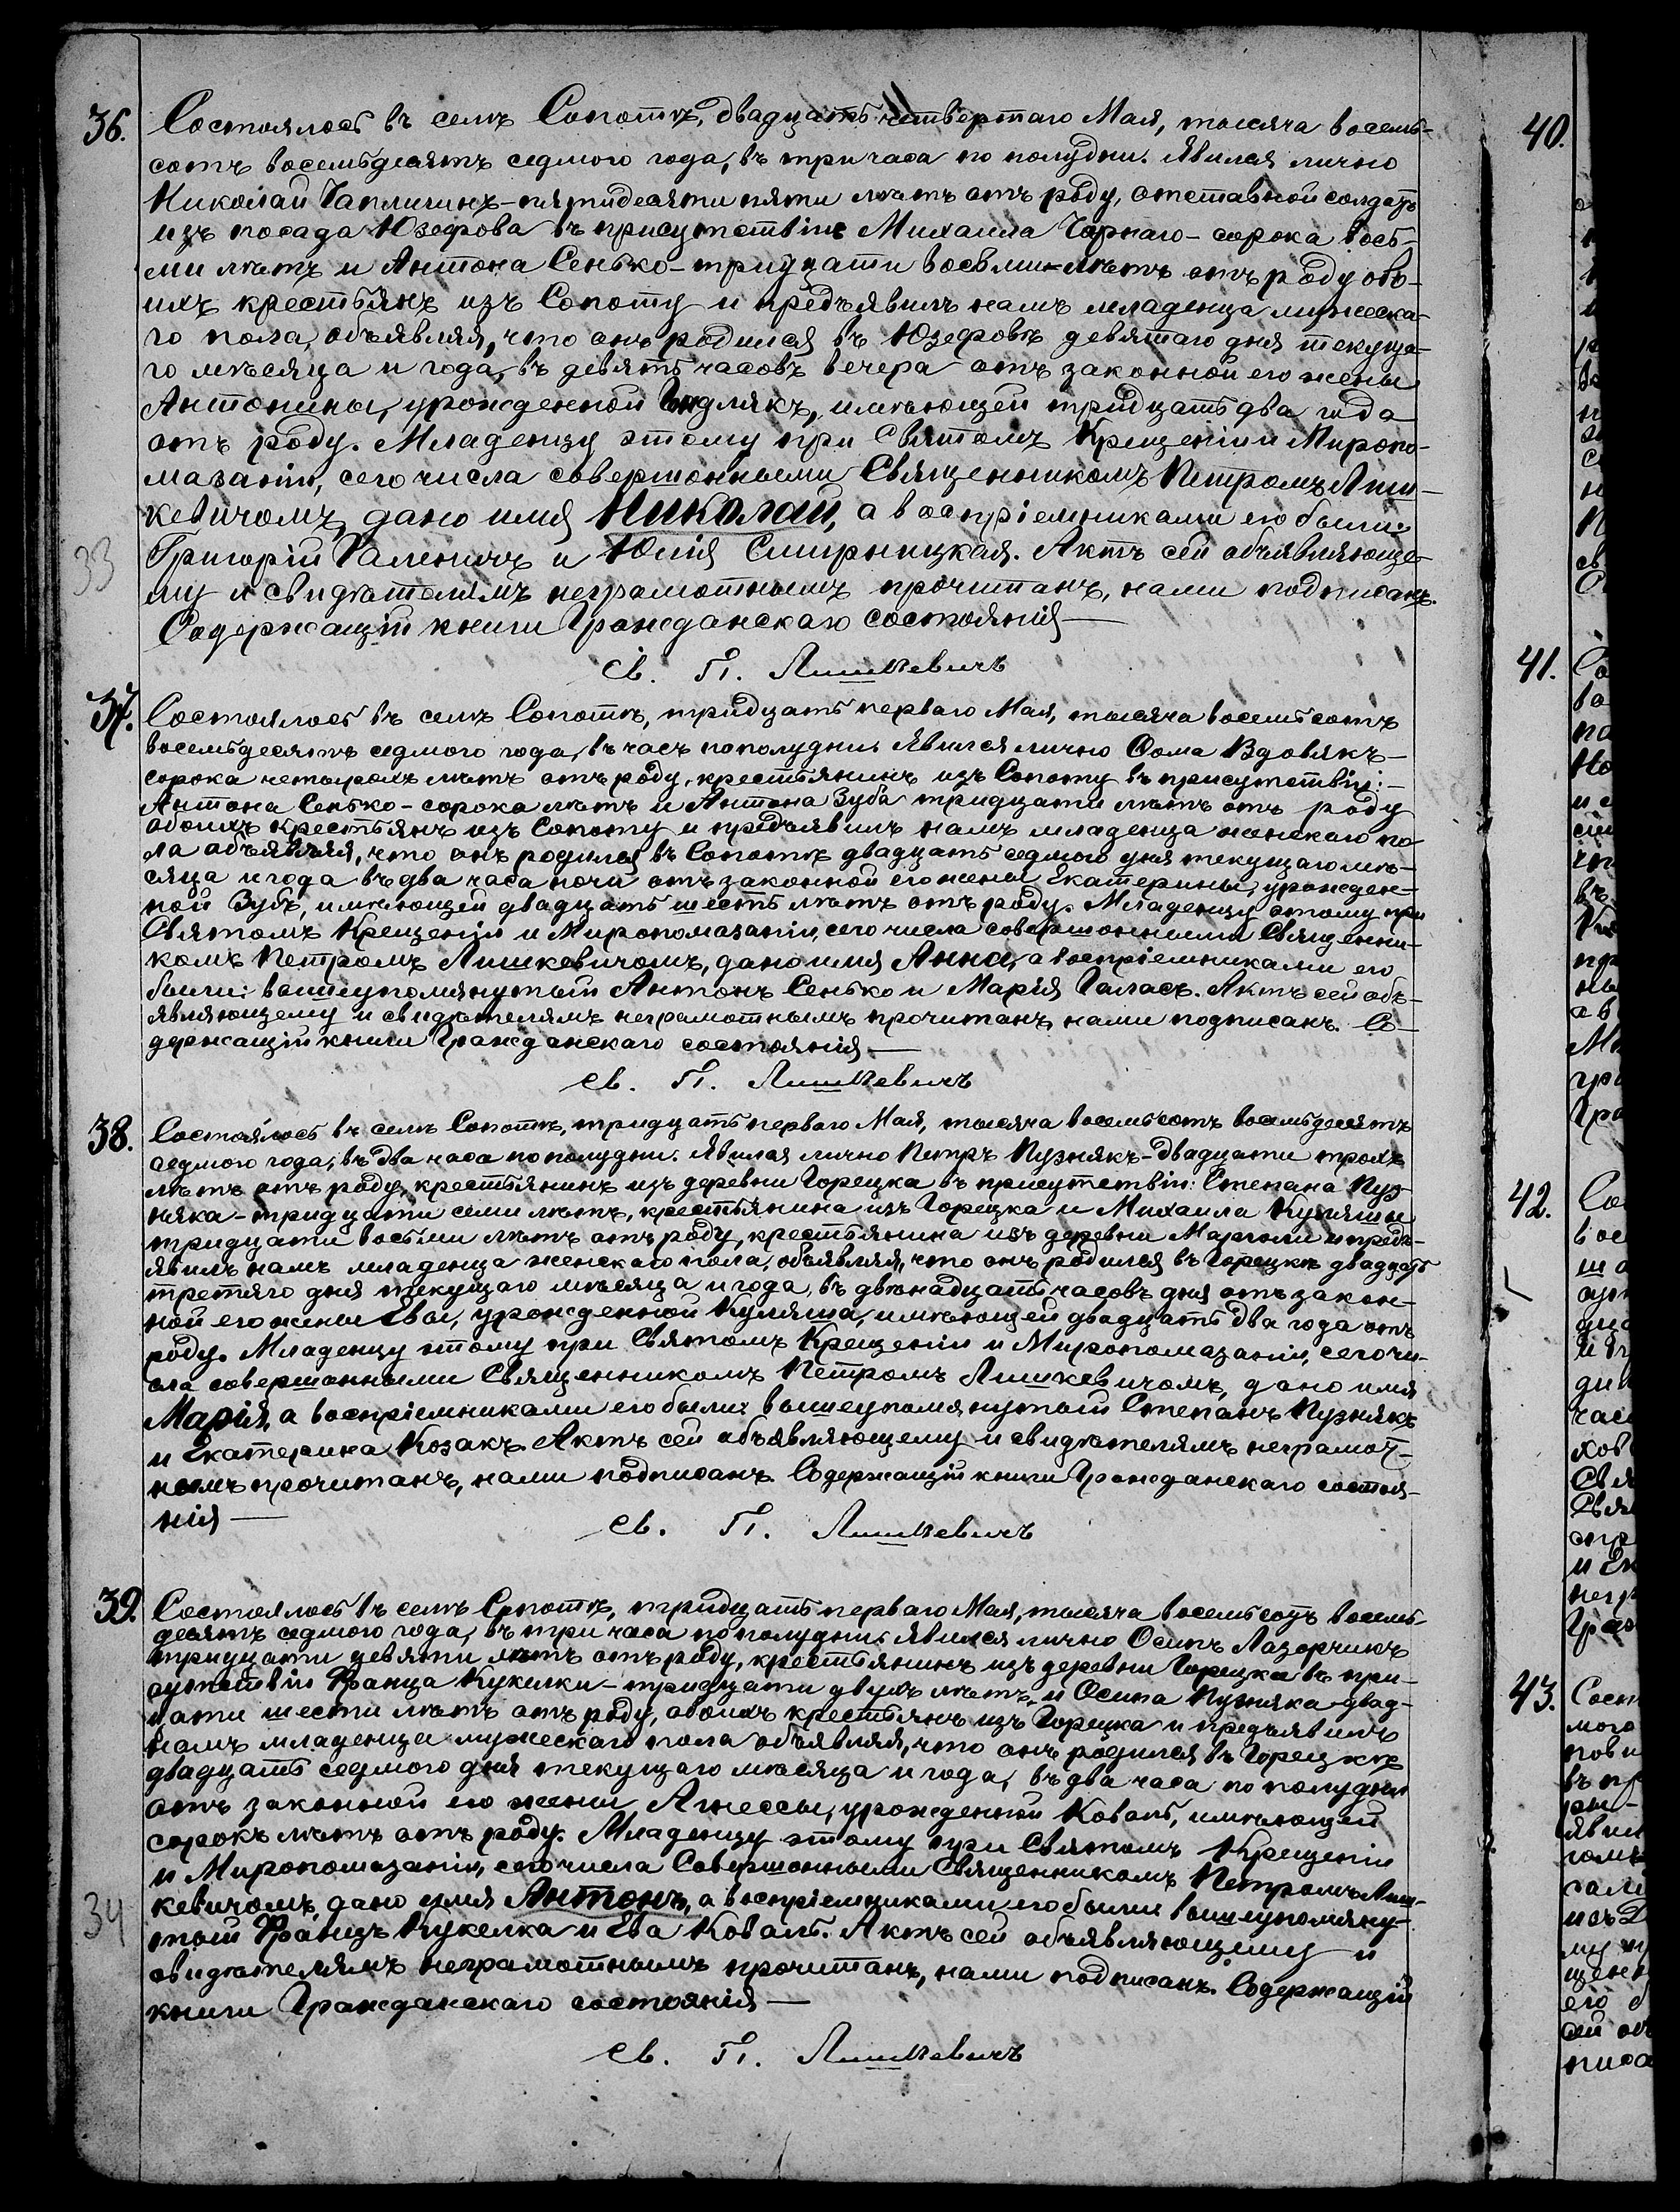 36.
Состоялось въ селѣ Сопотѣ, двадцать четвертаго Мая, тысяча восемь-
сотъ восемьдесятъ седмого года, въ три часа по полудни. Явился лично
Николай Чаплигинъ - пятидесяти пяти лѣтъ отъ роду, отставной солдатъ
изъ посада Юзефова въ присутствіи Михаила Чорнаго - сорока вось-
ми лѣтъ и Антона Сенько - тридцати восьми лѣтъ отъ роду обо-
ихъ крестьянъ изъ Сопоту и предъявилъ намъ младенца мужеска-
го пола, объявляя, что онъ родился въ Юзефовѣ девятаго дня текуща-
го мѣсяца и года, въ девять часовъ вечера отъ законной его жены
Антонины, урожденной имѣющей тридцать два года
отъ роду. Младенцу этому при Святомъ Крещеніи и Миропо-
мазаніи, сего числа совершонными Священникомъ Петромъ Лиш-
кевичомъ, дано имя Николай, а воспріемниками его были:
Григорій и Юлія Смирницкая. Актъ сей объявляюще-
му и свидѣтелямъ неграмотнымъ прочитанъ, нами подписанъ.
Содержащій книги Гражданскаго состоянія
Св. П. Лишкевичъ
33
37.
Состоялось въ селѣ Сопотѣ, тридцать перваго Мая, тысяча восемьсотъ
восемьдесятъ седмого года, въ часъ пополудни. Явился лично Ѳома Вдовякъ -
сорока четырохъ лѣтъ отъ роду, крестьянинъ изъ Сопоту въ присутствіи: -
Антона Сенько - сорока лѣтъ и Антона Зуба тридцати лѣтъ отъ роду
обоихъ крестьянъ изъ Сопоту и предъявилъ намъ младенца женскаго по-
ла объявляя, что онъ родился въ Сопотѣ двадцать седмого дня текущаго мѣ-
сяца и года въ два часа ночи отъ законной его жены Екатерины, урожден-
ной Зубъ, имѣющей двадцать шесть лѣтъ отъ роду. Младенцу этому при
Святомъ Крещеніи и Миропомазаніи, сего числа совершонными Священни-
комъ Петромъ Лишкевичомъ, дано имя Анна, а воспріемниками его
были: вышеупомянутый Антонъ Сенько и Марія Галасъ. Актъ сей объ-
являющему и свидѣтелямъ неграмотнымъ прочитанъ, нами подписанъ. Со-
держащій книги Гражданскаго состоянія
Св. П. Лишкевичъ
38.
Состоялось въ селѣ Сопотѣ, тридцать перваго Мая, тысяча восемьсотъ восемьдесятъ
седмого года, въ два часа пополудни. Явился лично Петръ Пузнякъ - двадцати трохъ
лѣтъ отъ роду, крестьянинъ изъ деревни Горецка въ присутствіи: Степана Пуз-
няка - тридцати семи лѣтъ, крестьянина изъ Горецка и Михаила Куляши
тридцати восьми лѣтъ отъ роду, крестьянина изъ деревни Марголи и предъ-
явилъ намъ младенца женскаго пола, объявляя, что онъ родился въ Горецкѣ двадцать
третяго дня текущаго мѣсяца и года, въ двѣнадцать часовъ дня отъ закон-
ной его жены Евы, урожденной Куляша, имѣющей двадцать два года отъ
роду. Младенцу этому при Святомъ Крещеніи и Миропомазаніи, сего чи-
сла совершонными Священникомъ Петромъ Лишкевичомъ, дано имя
Марія, а воспріемниками его были: вышеупомянутый Степанъ Пузнякъ
и Екатерина Козакъ. Актъ сей объявляющему и свидѣтелямъ неграмот-
нымъ прочитанъ, нами подписанъ. Содержащій книги Гражданскаго состоя-
нія
Св. П. Лишкевичъ
39.
Состоялось въ селѣ Сопотѣ, тридцать перваго Мая, тысяча восемьсотъ восемь-
десятъ седмого года, въ три часа пополудни. Явился лично Осипъ Лазорчикъ
тридцати девяти лѣтъ отъ роду, крестьянинъ изъ деревни Горецка въ при-
сутствіи Франца Кукелки - тридцати двухъ лѣтъ, и Осипа Пузняка - двад-
цати шести лѣтъ отъ роду, обоихъ крестьянъ изъ Горецка и предъявилъ
намъ младенца мужескаго пола объявляя, что онъ родился въ Горецкѣ
двадцать седмого дня текущаго мѣсяца и года, въ два часа по полудни
отъ законной его жены Агнессы, урожденной Коваль, имѣющей
сорокъ лѣтъ отъ роду. Младенцу этому при Святомъ Крещеніи
и Миропомазаніи, сего числа Совершонными Священникомъ Петромъ Лиш-
кевичомъ, дано имя Антонъ, а воспріемниками его были вышеупомяну-
тый Францъ Кукелка и Ева Коваль. Актъ сей объявляющему и
свидѣтелямъ неграмотнымъ прочитанъ, нами подписанъ. Содержащій
книги Гражданскаго состоянія
Св. П. Лишкевичъ
34
40.
41.
42.
43.